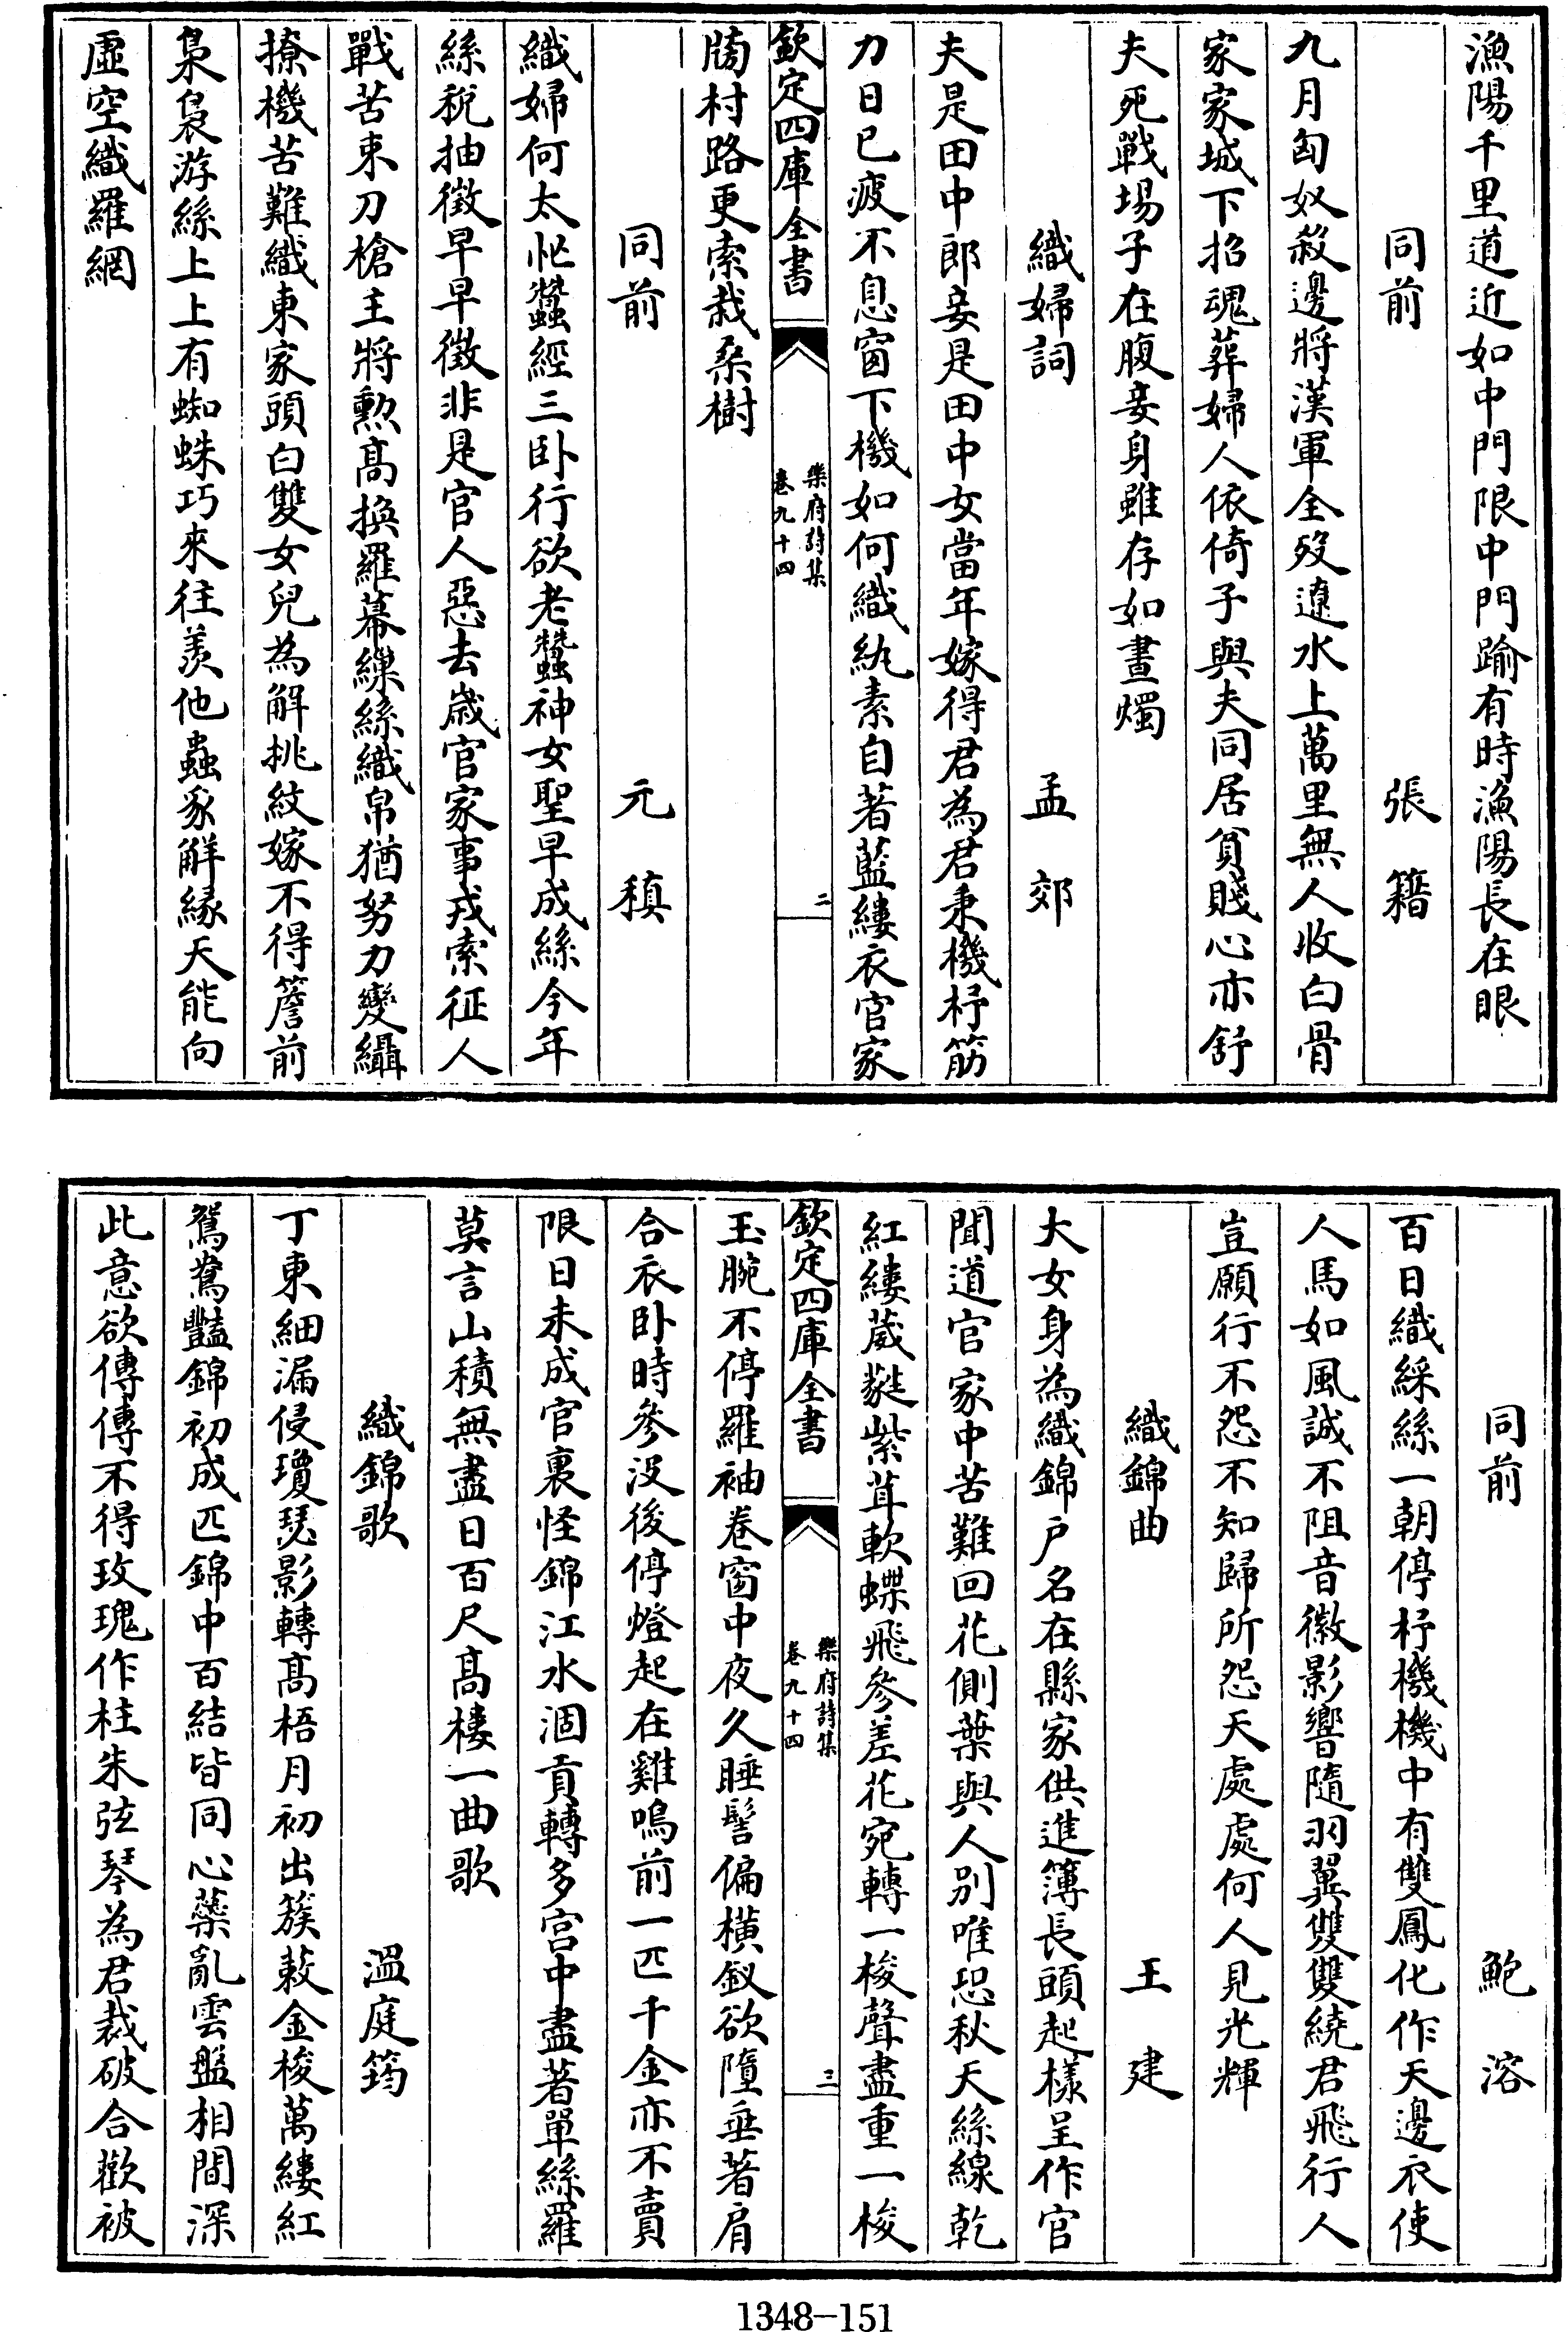 漁陽千里道近如中門限中門踰有時漁陽長在眼
同前　張籍
九月匈奴殺邊將漢軍全歿遼水上萬里無人收白骨
家家城下招魂葬婦人依倚子與夫同居貧賤心亦舒
夫死戰場子在腹妾身雖存如晝燭
織婦詞　孟郊
夫是田中郎妾是田中女當年嫁得君為君秉機杼筋
力日已疲不息窗下機如何織紈素自著藍縷衣官家
欽定四庫全書
樂府詩集
卷九十四
二
牓村路更索栽桑樹
同前　元稹
織婦何太忙蠶經三卧行欲老蠶神女聖早成絲今年
絲稅抽徵早早徵非是官人惡去歲官家事戎索征人
戰苦束刀槍主將勲髙換羅幕繅絲織帛猶努力變緝
撩機苦難織東家頭白雙女兒為解挑紋嫁不得簷前
裊裊游絲上上有蜘蛛巧來往羨他蟲豸解緣天能向
虛空織羅網
同前　鮑溶
百日織綵絲一朝停杼機機中有雙鳳化作天邊衣使
人馬如風誠不阻音徽影響隨羽翼雙雙繞君飛行人
豈願行不怨不知歸所怨天處處何人見光輝
織錦曲　王建
大女身為織錦户名在縣家供進簿長頭起樣呈作官
聞道官家中苦難回花側葉與人別唯恐秋天絲線乾
紅縷葳蕤紫茸軟蝶飛參差花宛轉一梭聲盡重一梭
欽定四庫全書
樂府詩集
卷九十四
三
玉腕不停羅袖卷窗中夜久睡髻偏橫釵欲墮垂著肩
合衣卧時參没後停燈起在雞鳴前一匹千金亦不賣
限日未成官裏怪錦江水涸貢轉多宮中盡著單絲羅
莫言山積無盡日百尺髙樓一曲歌
織錦歌　溫庭筠
丁東細漏侵瓊瑟影轉髙梧月初出簇蔌金梭萬縷紅
鴛鴦豔錦初成匹錦中百結皆同心蘂亂雲盤相間深
此意欲傳傳不得玫瑰作柱朱弦琴為君裁破合歡被
1348-151